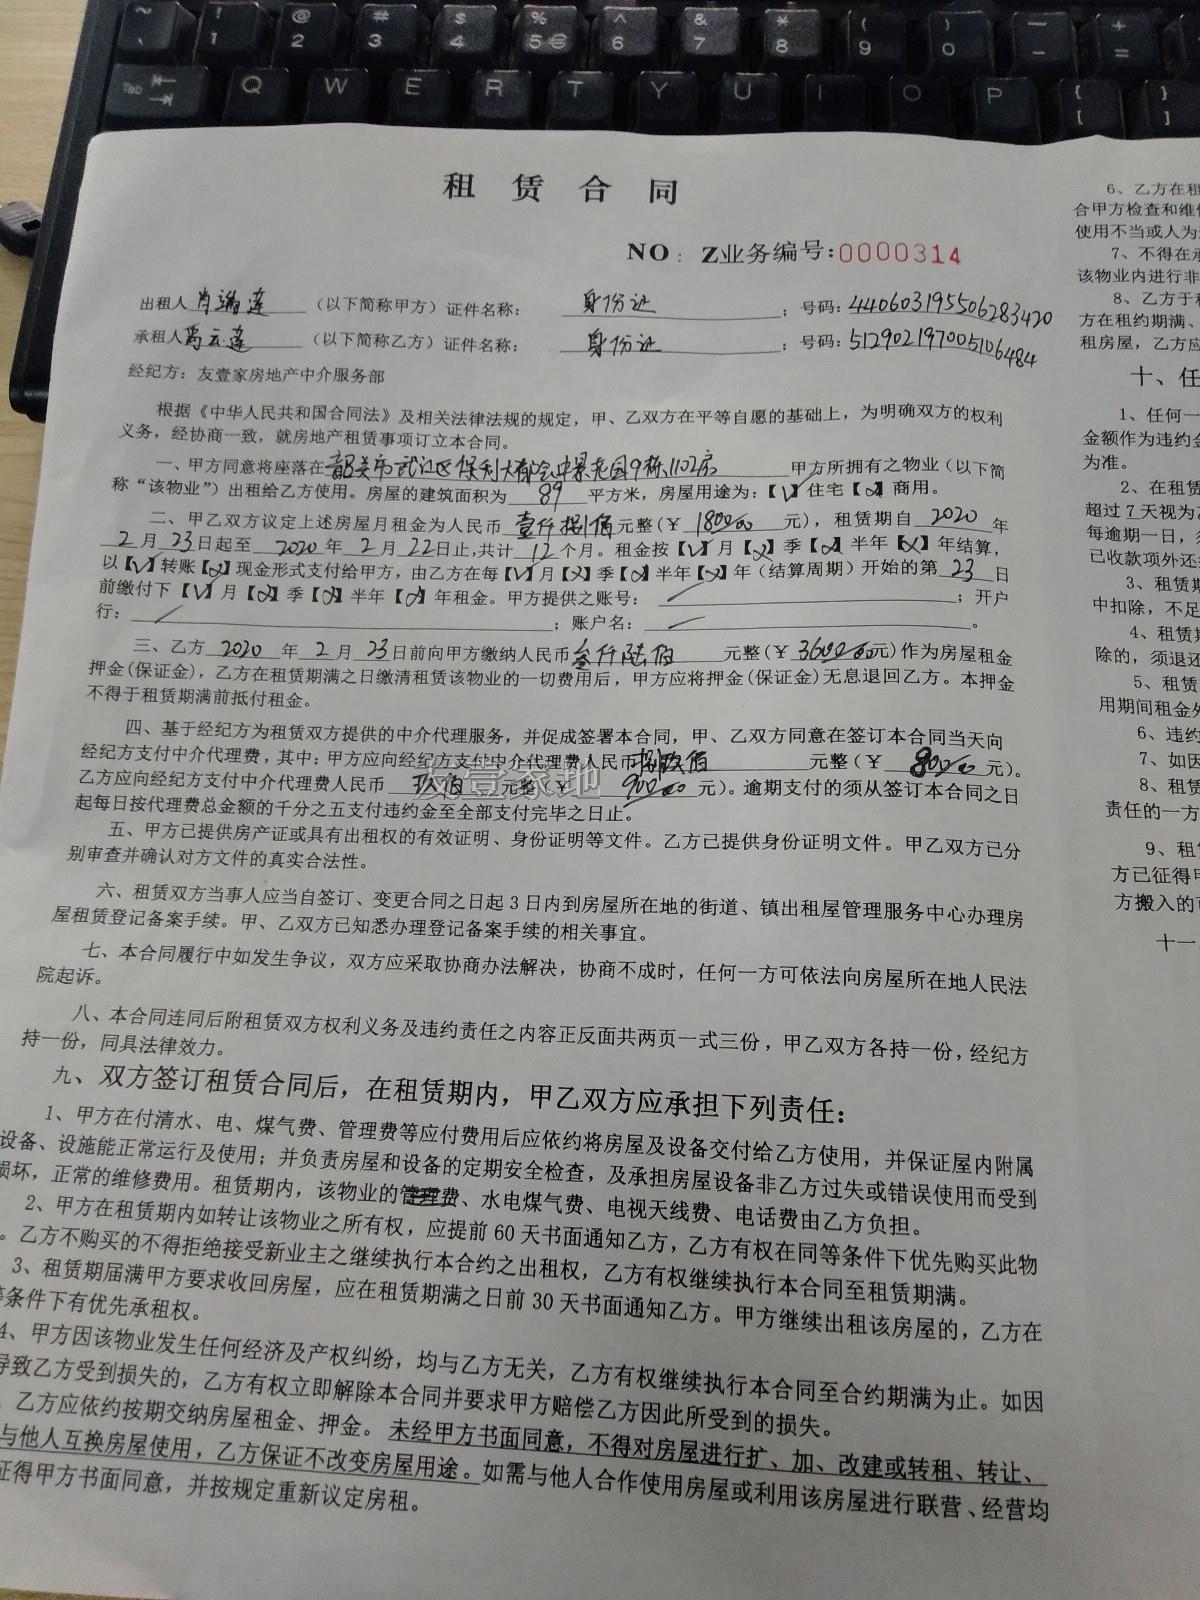 租赁合同
NO：Z业务编号：0000314
出租人肖瑞莲（以下简称甲方）证件名称：身份证；号码：440603195506283420
承租人 云莲（以下简称乙方）证件名称：身份证；号码：512902197005106484
经纪方：友壹家房地产中介服务部
根据《中华人民共和国合同法》及相关法律法规的规定，甲、乙双方在平等自愿的基础上，为明确双方的权利
义务，经协商一致，就房地产租赁事项订立本合同。
一、甲方同意将座落在韶关市武江区保利大都会中景花园9栋1102房 甲方所拥有之物业（以下简
称“该物业”）出租给乙方使用。房屋的建筑面积为 89 平方米，房屋用途为：【√】住宅【×】商用。
二、甲乙双方议定上述房屋月租金为人民币 壹仟捌佰元整（￥1800.00元），租赁期自 2020 年
2月23日起至 2020 年 2 月 22日止，共计 12 个月。租金按【√】月【×】季【×】半年【×】年结算，
以【√】转账【×】现金形式支付给甲方，由乙方在每【√】月【×】季【×】半年【×】年（结算周期）开始的第 23 日
前缴付下【√】月【×】季【×】半年【×】年租金。甲方提供之账号： / ；开户
行： / ；账户名： / 。
三、乙方 2020 年 2 月 23日前向甲方缴纳人民币叁仟陆佰 元整（￥3600.00元）作为房屋租金
押金(保证金)，乙方在租赁期满之日缴清租赁该物业的一切费用后，甲方应将押金(保证金)无息退回乙方。本押金
不得于租赁期满前抵付租金。
四、基于经纪方为租赁双方提供的中介代理服务，并促成签署本合同，甲、乙双方同意在签订本合同当天向
经纪方支付中介代理费，其中：甲方应向经纪方支付中介代理费人民币 佰 元整（￥ 元）。
乙方应向经纪方支付中介代理费人民币 玖佰 元整（￥ 900.00 元）。逾期支付的须从签订本合同之日
起每日按代理费总金额的千分之五支付违约金至全部支付完毕之日止。
友壹家地
五、甲方已提供房产证或具有出租权的有效证明、身份证明等文件。乙方已提供身份证明文件。甲乙双方已分
别审查并确认对方文件的真实合法性。
六、租赁双方当事人应当自签订、变更合同之日起 3 日内到房屋所在地的街道、镇出租屋管理服务中心办理房
屋租赁登记备案手续。甲、乙双方已知悉办理登记备案手续的相关事宜。
七、本合同履行中如发生争议，双方应采取协商办法解决，协商不成时，任何一方可依法向房屋所在地人民法
院起诉。
八、本合同连同后附租赁双方权利义务及违约责任之内容正反面共两页一式三份，甲乙双方各持一份，经纪方
持一份，同具法律效力。
九、双方签订租赁合同后，在租赁期内，甲乙双方应承担下列责任：
1、甲方在付清水、电、煤气费、管理费等应付费用后应依约将房屋及设备交付给乙方使用，并保证屋内附属
设备、设施能正常运行及使用；并负责房屋和设备的定期安全检查，及承担房屋设备非乙方过失或错误使用而受到
损坏，正常的维修费用。租赁期内，该物业的管理费、水电煤气费、电视天线费、电话费由乙方负担。
2、甲方在租赁期内如转让该物业之所有权，应提前 60 天书面通知乙方，乙方有权在同等条件下优先购买此物
。乙方不购买的不得拒绝接受新业主之继续执行本合约之出租权，乙方有权继续执行本合同至租赁期满。
3、租赁期届满甲方要求收回房屋，应在租赁期满之日前 30 天书面通知乙方。甲方继续出租该房屋的，乙方在
等条件下有优先承租权。
4、甲方因该物业发生任何经济及产权纠纷，均与乙方无关，乙方有权继续执行本合同至合约期满为止。如因
导致乙方受到损失的，乙方有权立即解除本合同并要求甲方赔偿乙方因此所受到的损失。
、乙方应依约按期交纳房屋租金、押金。未经甲方书面同意，不得对房屋进行扩、加、改建或转租、转让、
与他人互换房屋使用，乙方保证不改变房屋用途。如需与他人合作使用房屋或利用该房屋进行联营、经营均
征得甲方书面同意，并按规定重新议定房租。
6、乙方在租
合甲方检查和维
使用不当或人为
7、不得在
该物业内进行非
8、乙方于租
方在租约期满、
租房屋，乙方应
十、任
1、任何一
金额作为违约金
为准。
2、在租赁
超过 7 天视为
每逾期一日，
已收款项外还
3、租赁期
中扣除，不足
4、租赁期
除的，须退还
5、租赁
用期间租金外
6、违约
7、如因
8、租赁
责任的一方
9、租
方已征得甲
方搬入的
十一
~ ` ! 1 @ 2 # 3 $ 4 % 5 € ^ 6 & 7 * 8 ( 9 ) 0 — - + =
Tab Q W E R T Y U I O P { [ } ]